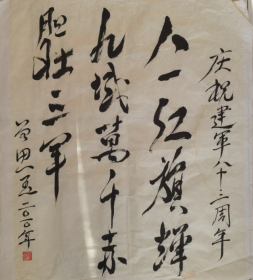 庆祝建军八十三周年
八一红旗辉
九域万千赤
胆壮三军
曾田 二〇一〇年